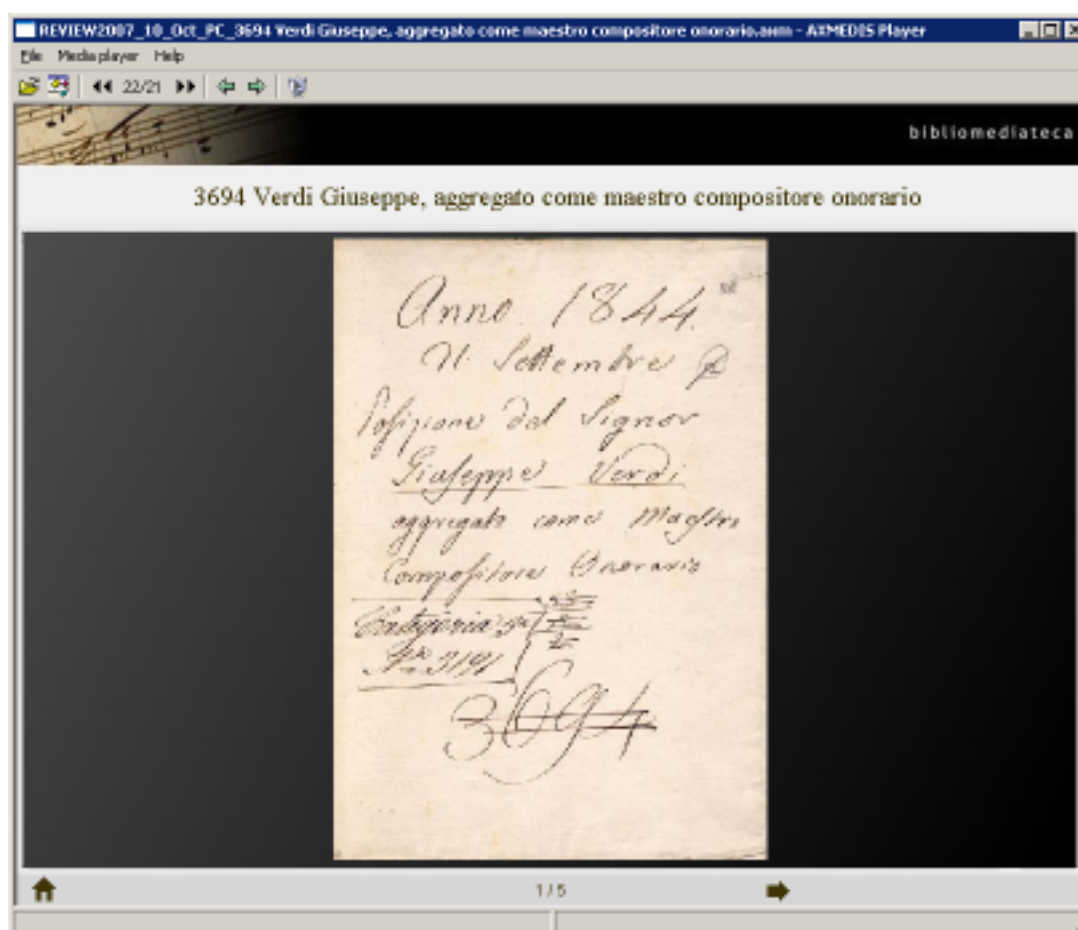 REVIEW2007_10_Oct_PC_3694 Verdi Giuseppe, aggregato come maestro compositore onorario.axm - AXMEDIS Player
File Mediaplayer Help
22/21
bibliomediateca
3694 Verdi Giuseppe, aggregato come maestro compositore onorario
Anno 1844.
Settembre
Posizione del Signor
Giuseppe Verdi
aggregato come Maestro
Compositore Onorario
Categoria
3191
3694
1/5